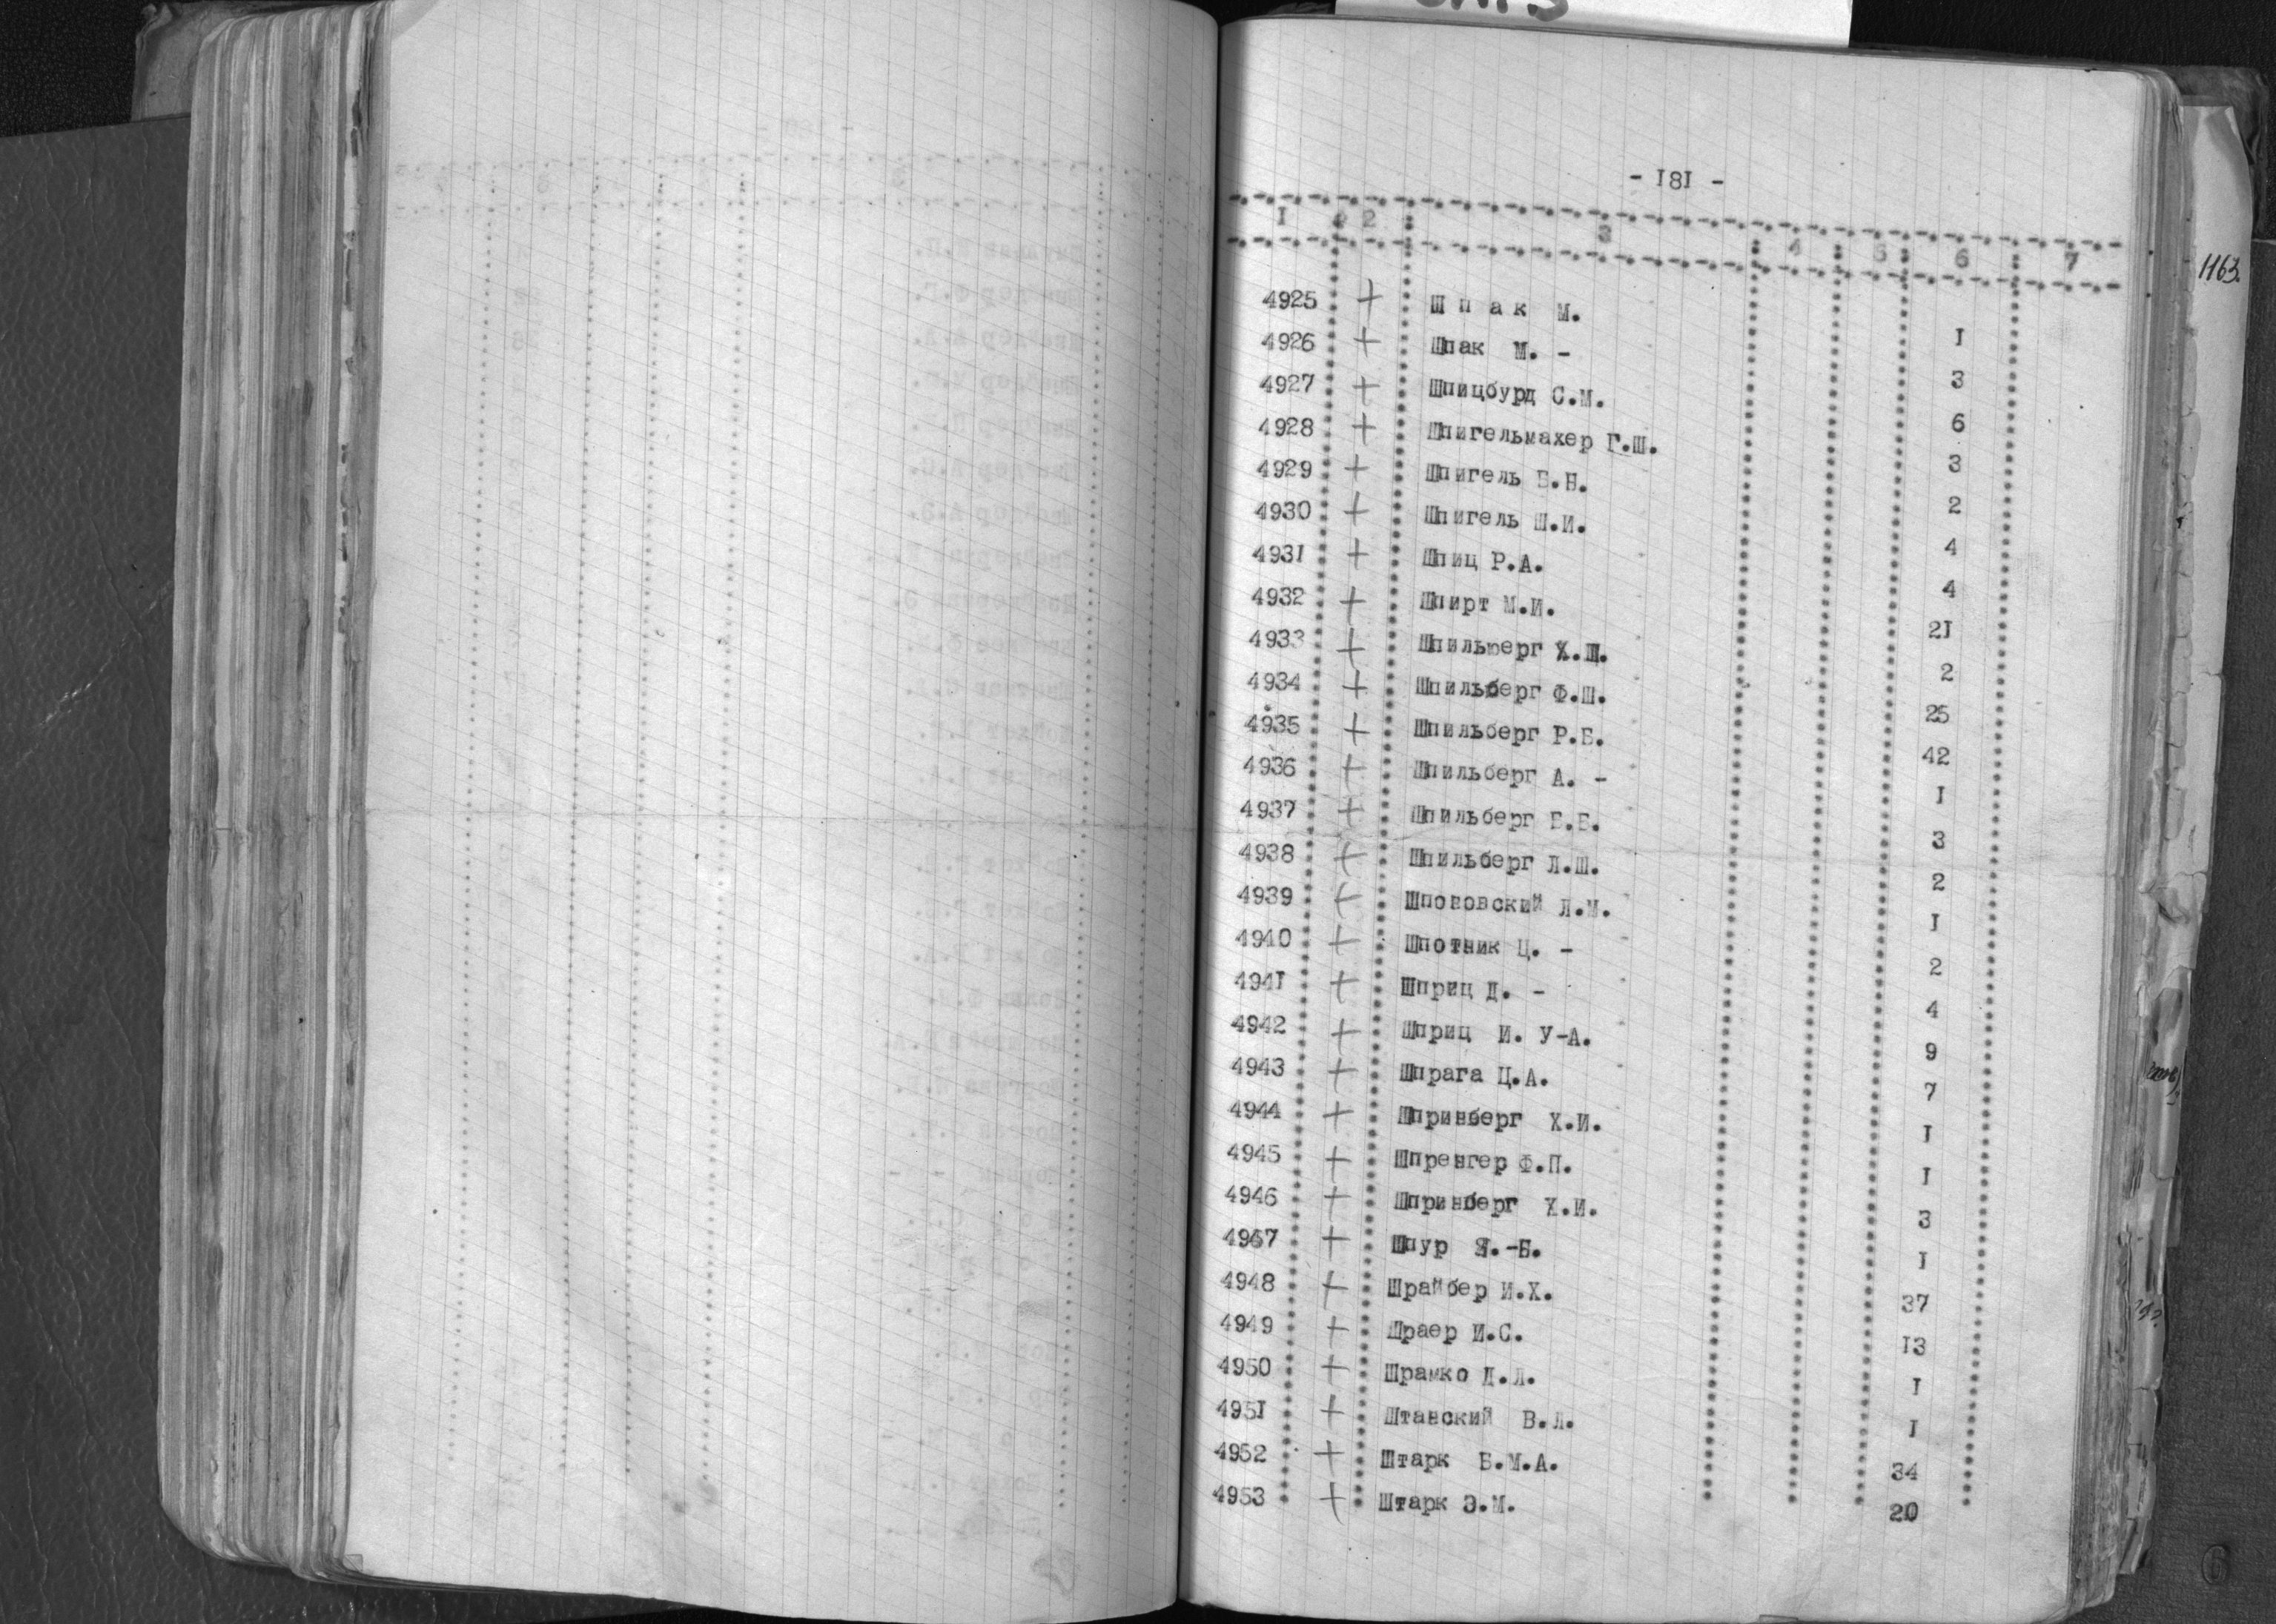 - I8I -
I 2 3 4 5 6 7
1163.
4925 + Ш п а к М. I
4926 + Шпак М. - 3
4927 + Шпицбурд С.М. 6
4928 + Шпигельмахер Г.Ш. 3
4929 + Шпигель Б.Н. 2
4930 + Шпигель Ш.И. 4
493I + Шпиц Р.А. 4
4932 + Шпирт М.И. 2I
4933 + Шпильберг Х.Ш. 2
4934 + Шпильберг Ф.Ш. 25
4935 + Шпильберг Р.Б. 42
4936 + Шпильберг А. - I
4937 + Шпильберг Б.Б. 3
4938 + Шпильберг Л.Ш. 2
4939 + Шпововский Л.М. I
4940 + Шпотник Ц. - 2
494I + Шприц Д. - 4
4942 + Шприц И. У-А. 9
4943 + Шпрага Ц.А. 7
4944 + Шпринберг Х.И. I
4945 + Шпренгер Ф.П. I
4946 + Шпринберг Х.И. 3
4947 + Шпур Я.-Б. I
4948 + Шрайбер И.Х. 37
4949 + Шраер И.С. I3
4950 + Шрамко Д.Л. I
495I + Штанский В.Л. I
4952 + Штарк Б.М.А. 34
4953 + Штарк Э.М. 20